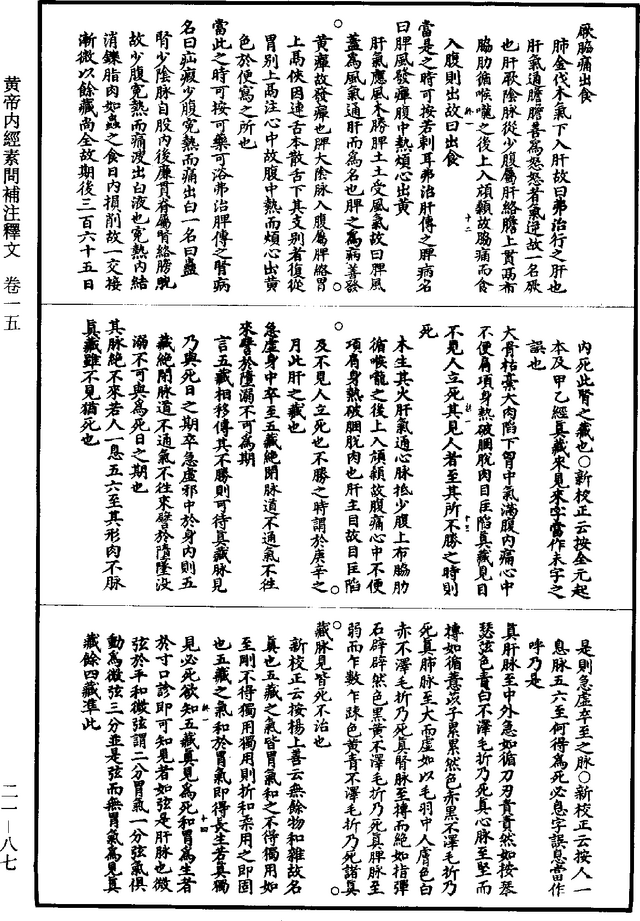 黄帝内經素問補注釋文　卷一五
二一—八七
厥脇痛出食
肺金伐木氣下入肝故曰弗治行之肝也
肝氣通膽膽善爲怒怒者氣逆故一名厥
也肝厥陰脉從少腹屬肝絡膽上貫鬲布
脇肋循喉嚨之後上入頏顙故脇痛而食
入腹則出故曰出食
當是之時可按若刺耳弗治肝傳之脾病名
曰脾風發癉腹中熱煩心出黄
肝氣應風木勝脾土土受風氣故曰脾風
蓋爲風氣通肝而爲名也脾之爲病善發
黄癉故發癉也脾太陰脉入腹屬脾絡胃
上鬲俠咽連舌本散舌下其支別者復從
胃別上鬲注心中故腹中熱而煩心出黄
色於便寫之所也
當此之時可按可藥可浴弗治脾傳之腎病
名曰疝瘕少腹寃熱而痛出白一名曰蠱
腎少陰脉自股内後廉貫脊屬腎絡膀胱
故少腹寃熱而痛溲出白液也寃熱内結
消鑠脂肉如蟲之食日内損削故一交接
漸微以餘藏尚全故期後三百六十五日
内死此腎之藏也○新校正云按全元起
本及甲乙經真藏來見來字當作未字之
誤也
大骨枯藁大肉陷下胷中氣滿腹内痛心中
不便肩項身熱破䐃脱肉目匡陷真藏見目
不見人立死其見人者至其所不勝之時則
死
木生其火肝氣通心脉抵少腹上布脇肋
循喉嚨之後上入頏顙故腹痛心中不便
項肩身熱破䐃脱肉也肝主目故目匡陷
及不見人立死也不勝之時謂於庚辛之
月此肝之藏也
急虚身中卒至五藏絶閉脉道不通氣不往
來譬於墮溺不可爲期
言五藏相移傳其不勝則可待真藏脉見
乃與死日之期卒急虚邪中於身内則五
藏絶閉脉道不通氣不往來譬於墮墜没
溺不可與爲死日之期也
其脉絶不來若人一息五六至其形肉不脉
真藏雖不見猶死也
是則急虚卒至之脉○新校正云按人一
息脉五六至何得爲死必息字誤息當作
呼乃是
真肝脉至中外急如循刀刃責責然如按琴
瑟弦色青白不澤毛折乃死真心脉至堅而
摶如循薏苡子累累然色赤黑不澤毛折乃
死真肺脉至大而虚如以毛羽中人膚色白
赤不澤毛折乃死真腎脉至摶而絶如指彈
石辟辟然色黑黄不澤毛折乃死真脾脉至
弱而乍數乍疎色黄青不澤毛折乃死諸真
藏脉見皆死不治也
新校正云按楊上善云無餘物和雜故名
真也五藏之氣皆胃氣和之不得獨用如
至剛不得獨用獨用則折和柔用之即固
也五藏之氣和於胃氣即得長生若真獨
見必死欲知五藏真見爲死和胃爲生者
於寸口診即可知見者如弦是肝脉也微
弦於平和微弦謂二分胃氣一分弦氣俱
動爲微弦三分並是弦而無胃氣爲見真
藏餘四藏準此